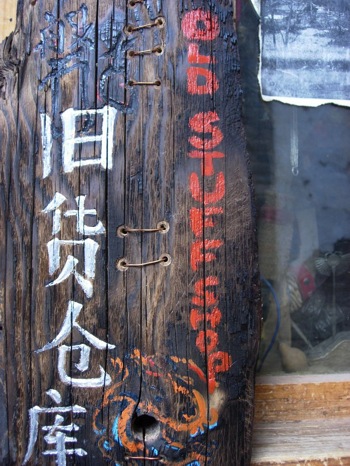 旧货仓库
OLD STUFF SHOP